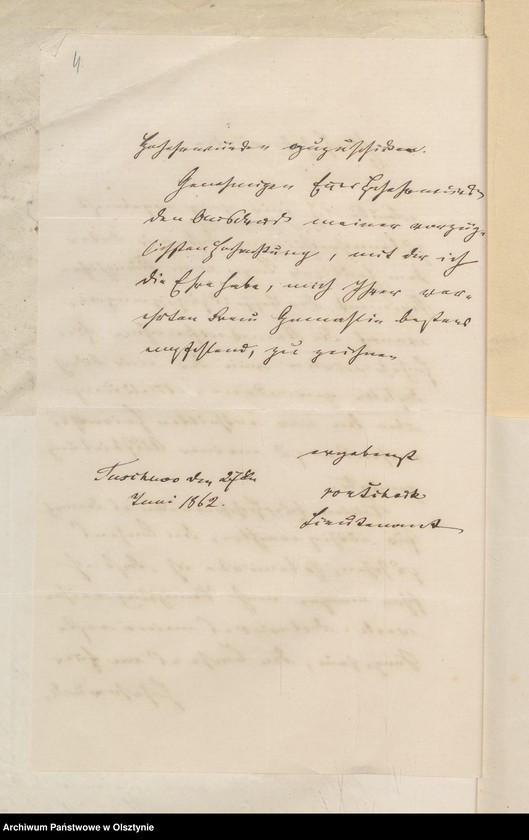 4
Hochehrwürden zuzuschicken.
Genehmigen Euer Hochehrwürden
den Ausdruck meiner vorzüg-
lichsten Hochachtung, mit der ich
die Ehre habe, mich Ihrer ver-
ehrten Frau Gemahlin bestens
empfehlend, zu zeichnen
ergebenst
den 27ten
Juni 1862.
von
Lieutenant
Archiwum Państwowe w Olsztynie